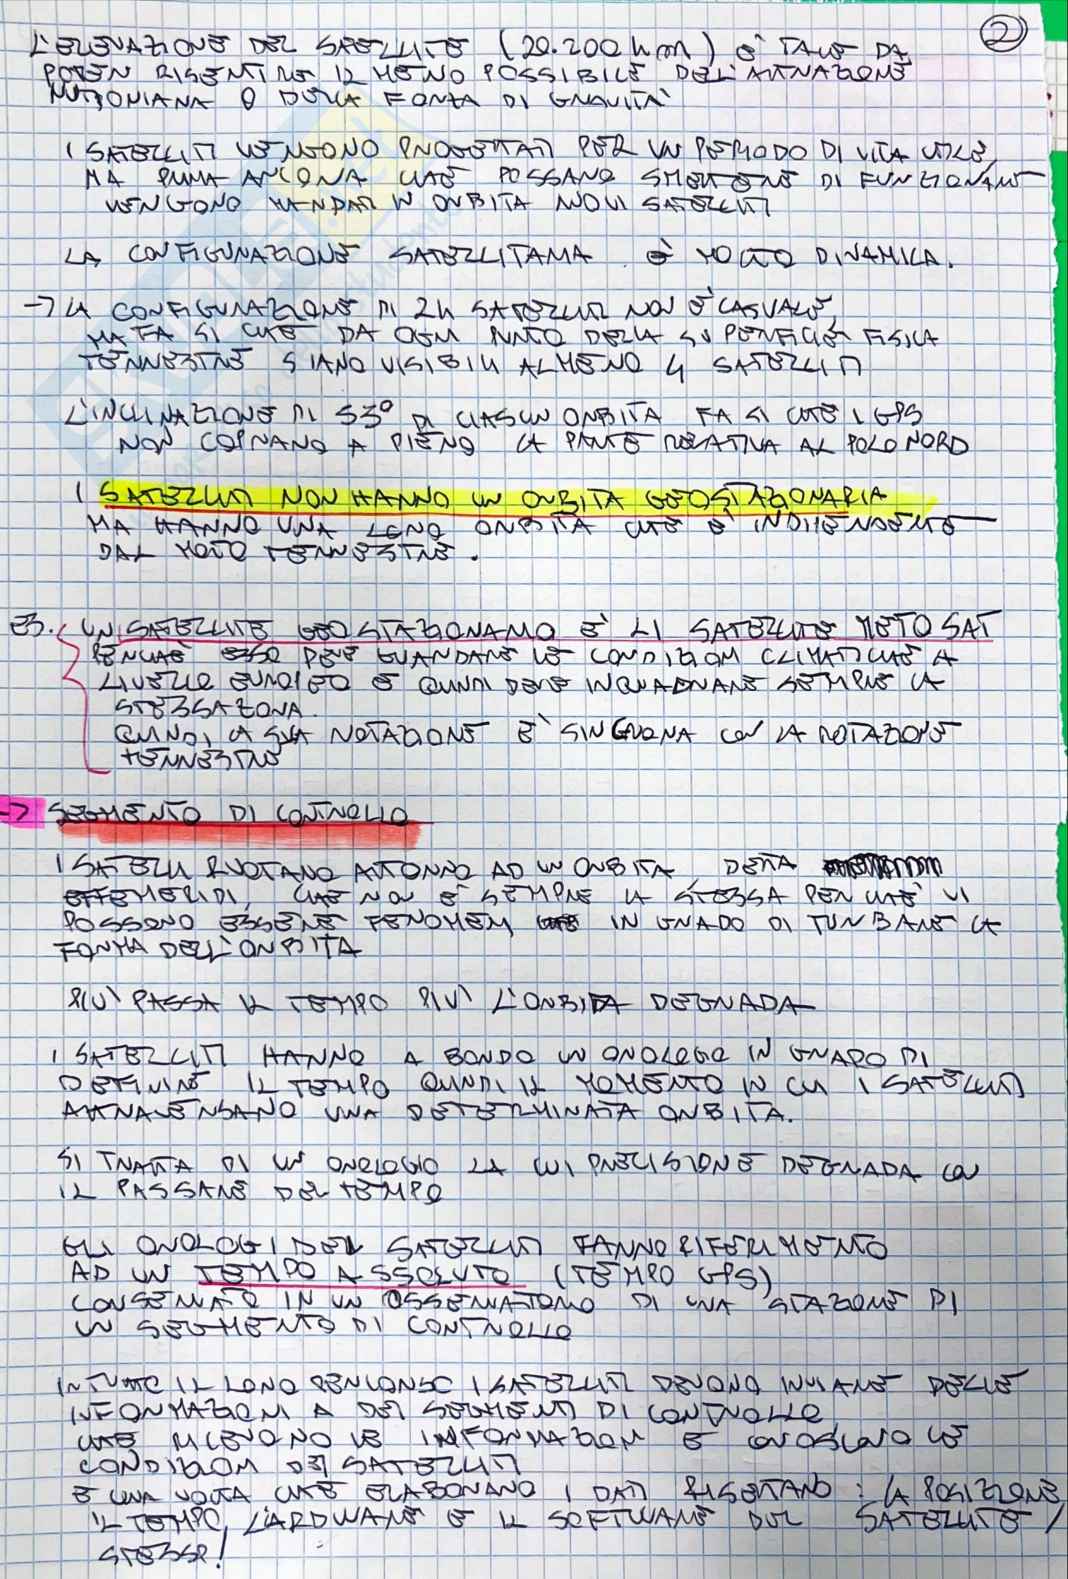 2
L'ELEVAZIONE DEL SATELLITE (20.200 km) E' TALE DA
POTER RISENTIRE IL MENO POSSIBILE DELL'ATTRAZIONE
NUTONIANA O DELLA FORZA DI GRAVITA'
I SATELLITI VENGONO PROGETTATI PER UN PERIODO DI VITA UTILE,
MA PRIMA ANCORA CHE POSSANO SMETTERE DI FUNZIONARE
VENGONO MANDATI IN ORBITA NUOVI SATELLITI
LA CONFIGURAZIONE SATELLITARIA E' MOLTO DINAMICA.
→ LA CONFIGURAZIONE DI 24 SATELLITI NON E' CASUALE,
MA FA SI CHE DA OGNI PUNTO DELLA SUPERFICIE FISICA
TERRESTRE SIANO VISIBILI ALMENO 4 SATELLITI
L'INCLINAZIONE DI 55° DI CIASCUN ORBITA FA SI CHE I GPS
NON COPRANO A PIENO LA PARTE RELATIVA AL POLO NORD
I SATELLITI NON HANNO UN ORBITA GEOSTAZIONARIA
MA HANNO UNA LORO ORBITA CHE E' INDIPENDENTE
DAL MOTO TERRESTRE.
ES. UN SATELLITE GEOSTAZIONARIO E' LI SATELLITE METOSAT
PERCHE' ESSO DEVE GUARDARE LE CONDIZIONI CLIMATICHE A
LIVELLO EUROPEO E QUINDI DEVE INQUADRARE SEMPRE LA
STESSA ZONA.
QUINDI, LA SUA ROTAZIONE E' SINCRONA CON LA ROTAZIONE
TERRESTRE
→ SEGMENTO DI CONTROLLO
I SATELLITI RUOTANO ATTORNO AD UN ORBITA, DETTA
EFFEMERIDI, CHE NON E' SEMPRE LA STESSA PERCHE' VI
POSSONO ESSERE FENOMENI IN GRADO DI TURBARE LA
FORMA DELL'ORBITA
PIU' PASSA IL TEMPO PIU' L'ORBITA DEGRADA
I SATELLITI HANNO A BORDO UN OROLOGIO IN GRADO DI
DEFINIRE IL TEMPO QUINDI IL MOMENTO IN CUI I SATELLITI
ATTRAVERSANO UNA DETERMINATA ORBITA.
SI TRATTA DI UN OROLOGIO LA CUI PRECISIONE DEGRADA CON
IL PASSARE DEL TEMPO
GLI OROLOGI DEI SATELLITI FANNO RIFERIMENTO
AD UN TEMPO ASSOLUTO (TEMPO GPS)
CONSERVATO IN UN OSSERVATORIO DI UNA STAZIONE DI
UN SEGMENTO DI CONTROLLO
IN TUTTO IL LORO PERCORSO I SATELLITI DEVONO INVIARE DELLE
INFORMAZIONI A DEI SEGMENTI DI CONTROLLO,
CHE RICEVONO LE INFORMAZIONI E CONOSCONO LE
CONDIZIONI DEI SATELLITI
E UNA VOLTA CHE ELABORANO I DATI RISETTANO: LA POSIZIONE,
IL TEMPO, L'ARDWARE E IL SOFTWARE DEL SATELLITE
STESSO!